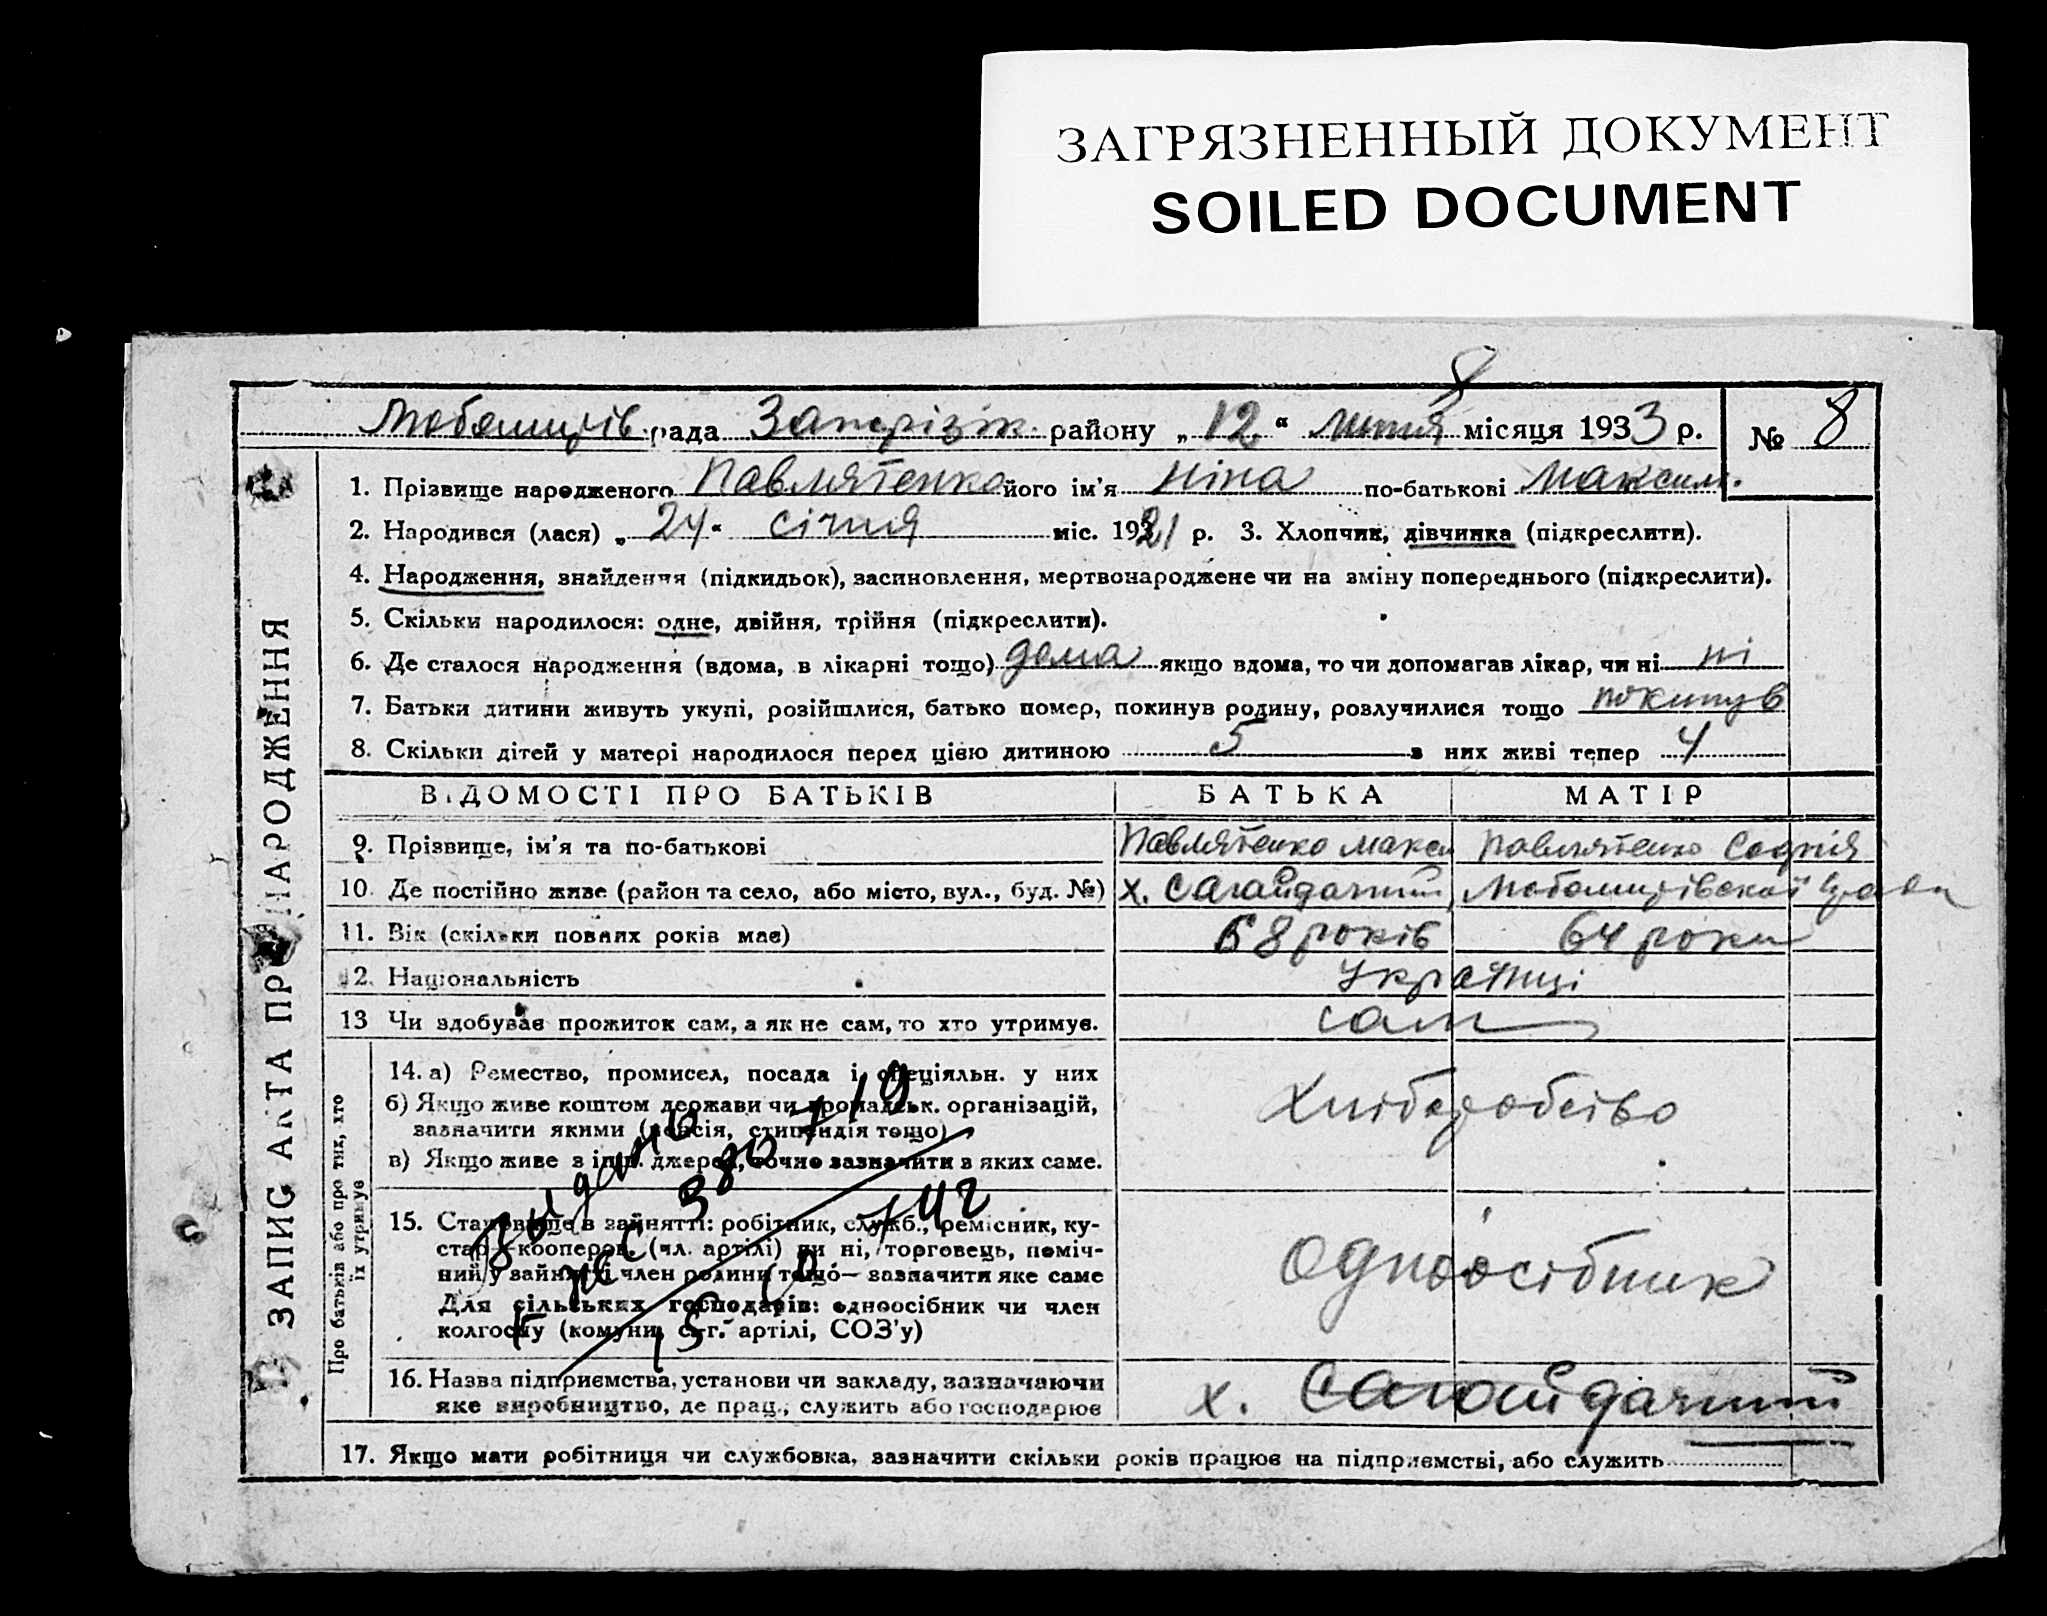 ЗАГРЯЗНЕННЫЙ ДОКУМЕНТ
SOILED DOCUMENT
8
рада району „ 12 “ місяця 1933 р. № 8
ЗАПИС АКТА ПРО НАРОДЖЕННЯ
1. Прізвище народженого Павлятенко його ім'я Ніна по-батькові Максим.
2. Народився (лася) „ 24 “ січня міс. 1921 р. 3. Хлопчик, дівчинка (підкреслити).
4. Народження, знайдення (підкидьок), засиновлення, мертвонароджене чи на зміну попереднього (підкреслити).
5. Скільки народилося: одне, двійня, трійня (підкреслити).
6. Де сталося народження (вдома, в лікарні тощо) дома якщо вдома, то чи допомагав лікар, чи ні ні
7. Батьки дитини живуть укупі, розійшлися, батько помер, покинув родину, розлучилися тощо покинув
8. Скільки дітей у матері народилося перед цією дитиною 5 з них живі тепер 4
ВІДОМОСТІ ПРО БАТЬКІВ БАТЬКА МАТІР
9. Прізвище, ім'я та по-батькові Павлятенко Макси Павлятенко Софія
10. Де постійно живе (район та село, або місто, вул., буд. №) х. Сагайдачний,
11. Вік (скільки повних років має) 68 років 64 роки
12. Національність Українці
13 Чи здобуває прожиток сам, а як не сам, то хто утримує. сам
Про батьків або про тих, хто
їх утримує
14. а) Ремество, промисел, посада і спеціяльн. у них
б) Якщо живе коштом держави чи громадськ. організацій,
зазначити якими (пенсія, стипендія тощо)
в) Якщо живе з інш. джерел, точно зазначити в яких саме.
Хліборобство
15. Становище в зайнятті: робітник, служб., ремісник, ку-
стар—коопером. (чл. артілі) чи ні, торговець, поміч-
ний у зайнятті член родини тощо— зазначити яке саме
Для сільських господарів: одноосібник чи член
колгоспу (комуни, с.-г. артілі, СОЗ'у)
Одноосібник
16. Назва підприємства, установи чи закладу, зазначаючи
яке виробництво, де прац., служить або господарює
х. Сагайдачний
17. Якщо мати робітниця чи службовка, зазначити скільки років працює на підприємстві, або служить